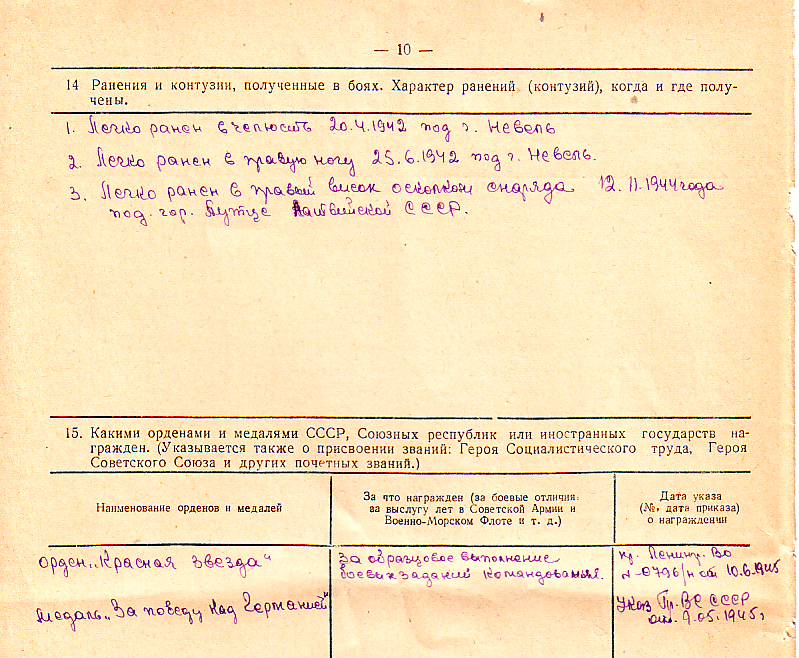 — 10 —
14 Ранения и контузии, полученные в боях. Характер ранений (контузий), когда и где полу-
чены.
1. Легко ранен в челюсть 20.4.1942 под г. Невель
2. Легко ранен в правую ногу 25.6.1942 под г. Невель.
3. Легко ранен в правый висок осколком снаряда 12.11.1944 года
под. гор. Латвийской СССР.
15. Какими орденами и медалями СССР, Союзных республик или иностранных государств на-
гражден. (Указывается также о присвоении званий: Героя Социалистического труда, Героя
Советского Союза и других почетных званий.)
Наименование орденов и медалей
За что награжден (за боевые отличия:
ва выслугу лет в Советской Армии и
Военно-Морском Флоте и т. д.)
Дата указа
(№, дата приказа)
о награждении
орден „Красная звезда"
За образцовое выполнение
боевых заданий командования.
пр. Ленингр. ВО
от 10.6.1945
медаль „За победу над Германией"
Указ Пр. ВС СССР
от. 9.05.1945г